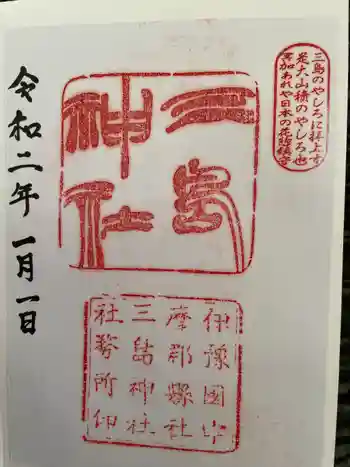 三島のやしろに拝上す
是大山積のやしろ也
冥加あれや日本の花惣鎮守
三島
神社
伊豫國宇
摩郡縣社
三島神社
社務所印
令和二年 一月一日